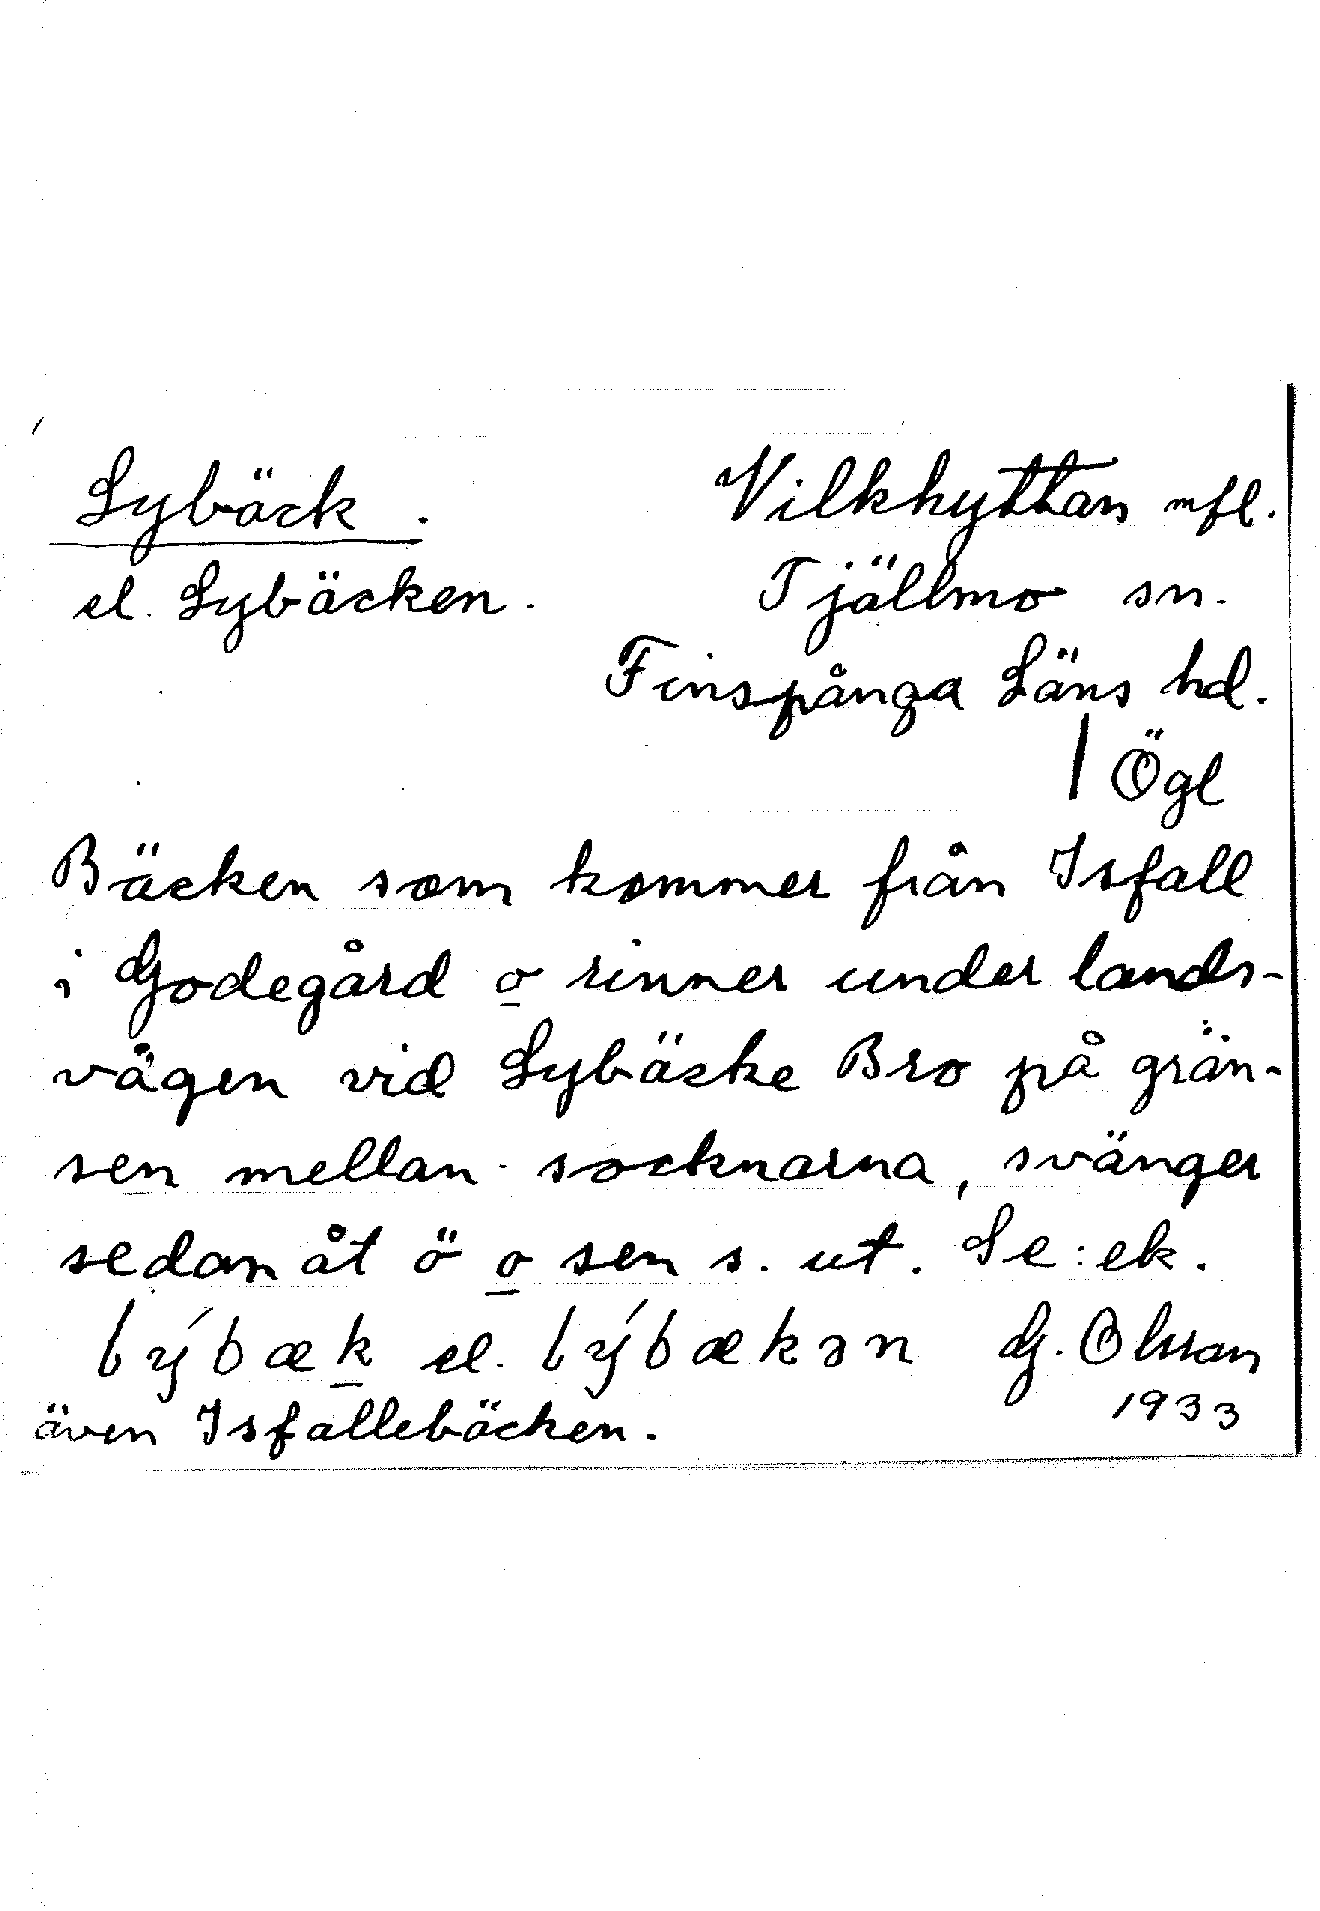 Lybäck.
el. Lybäcken.
Vilkhyttan mfl.
Tjällmo sn.
Finspånga Läns hd.
Ögl
Bäcken som kommer från Isfall
i Godegård o rinner under lands-
vägen vid Lybäcke Bro på grän-
sen mellan socknarna, svänger
sedan åt ö o sen s. ut. Se: ek.
lýbæk el. lýbækən G. Olsson
1933
även Isfallebäcken.